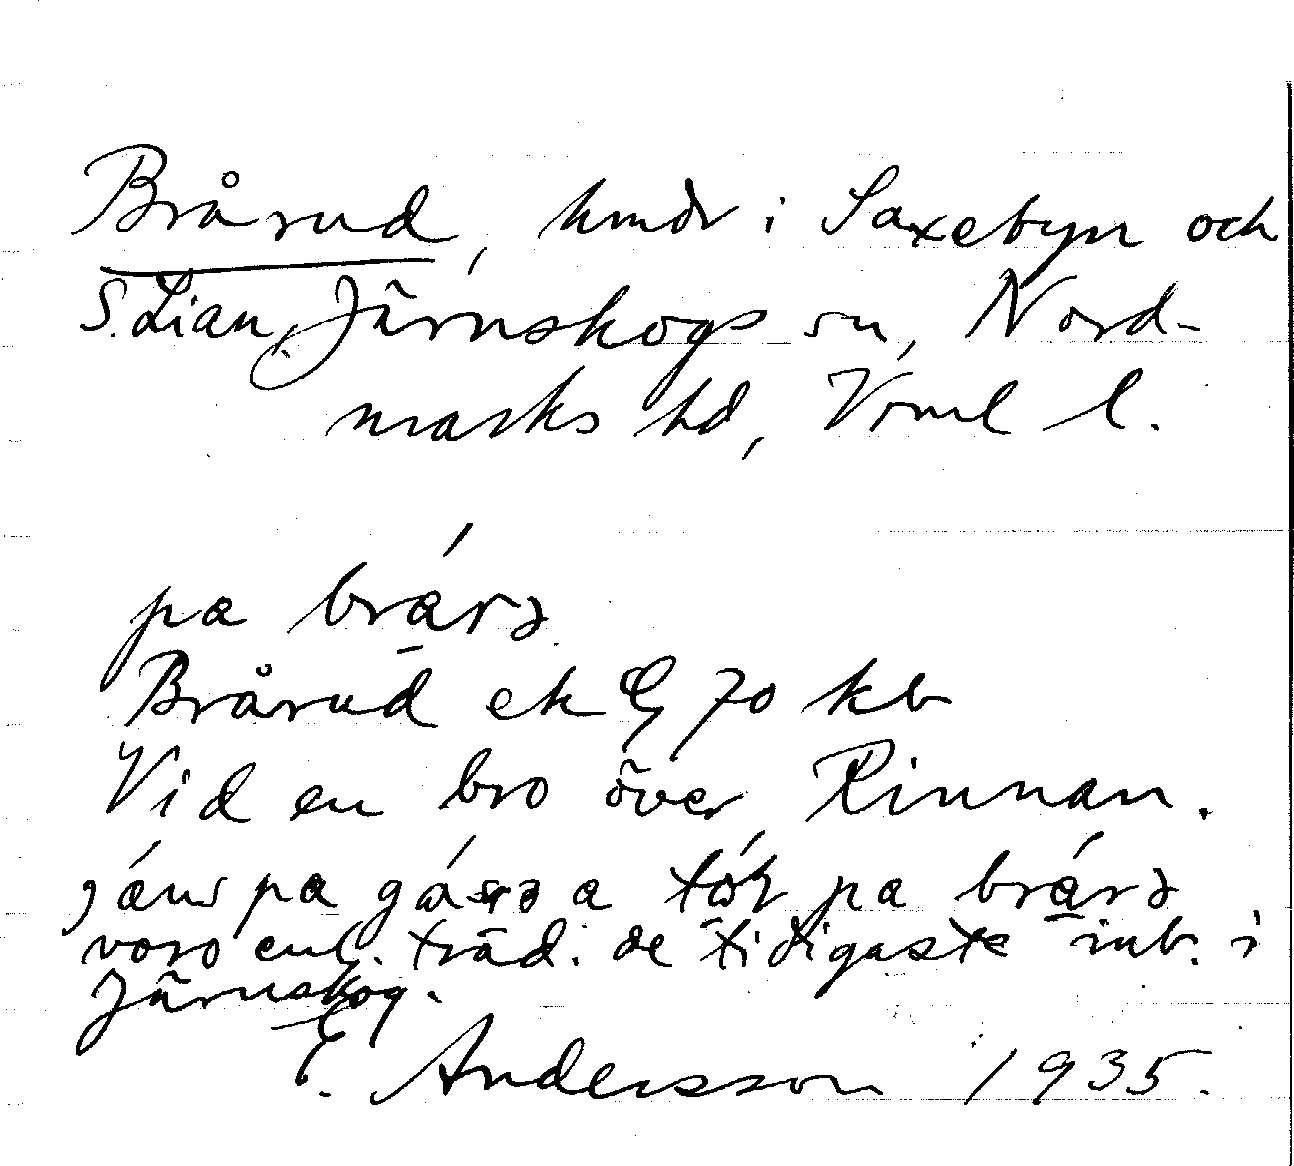 Brårud, hmdr i Saxebyn och
S. Lian, Järnskogs sn, Nord-
marks hd, Vrml l.
pa brárə
Brårud ek 70 kb
Vid en bro över Rinnan.
pa a pa brárə
voro enl. träd. de tidigaste inb. i
Järnskog.
E. Andersson 1935.